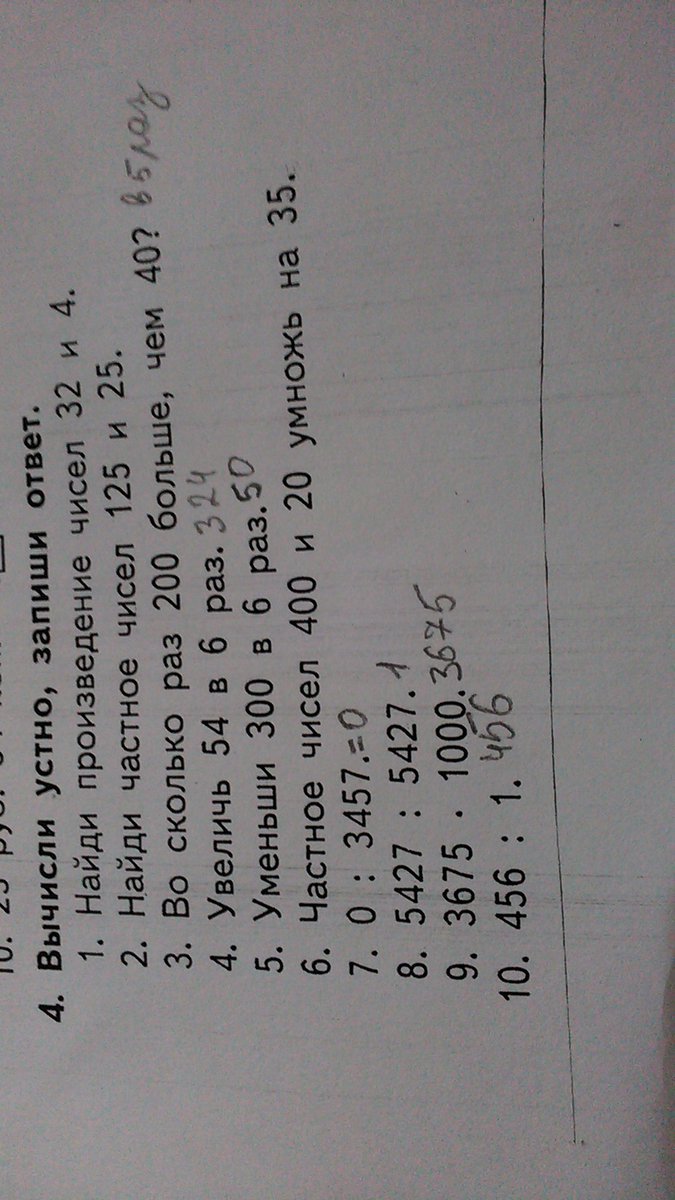 4. Вычисли устно, запиши ответ.
1. Найди произведение чисел 32 и 4.
2. Найди частное чисел 125 и 25.
3. Во сколько раз 200 больше, чем 40? в 5 раз
4. Увеличь 54 в 6 раз. 324
5. Уменьши 300 в 6 раз. 50
6. Частное чисел 400 и 20 умножь на 35.
7. 0 : 3457. =0
8. 5427 : 5427. 1
9. 3675 · 1000. 3675
10. 456 : 1. 456